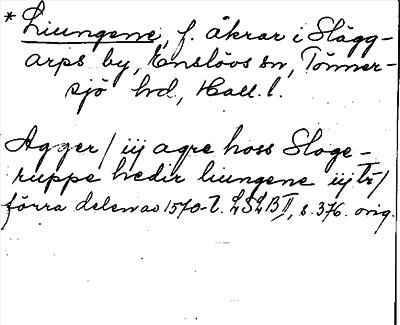 * Liungene, f. åkrar i Slägg-
arps by, Enslövs sn, Tönner-
sjö hd, Hall. l.
Agger / iij agre hoss Sloge-
ruppe hedir liungene iij tr/
förra delen av 1570-t. LSLB II, s. 376. orig.